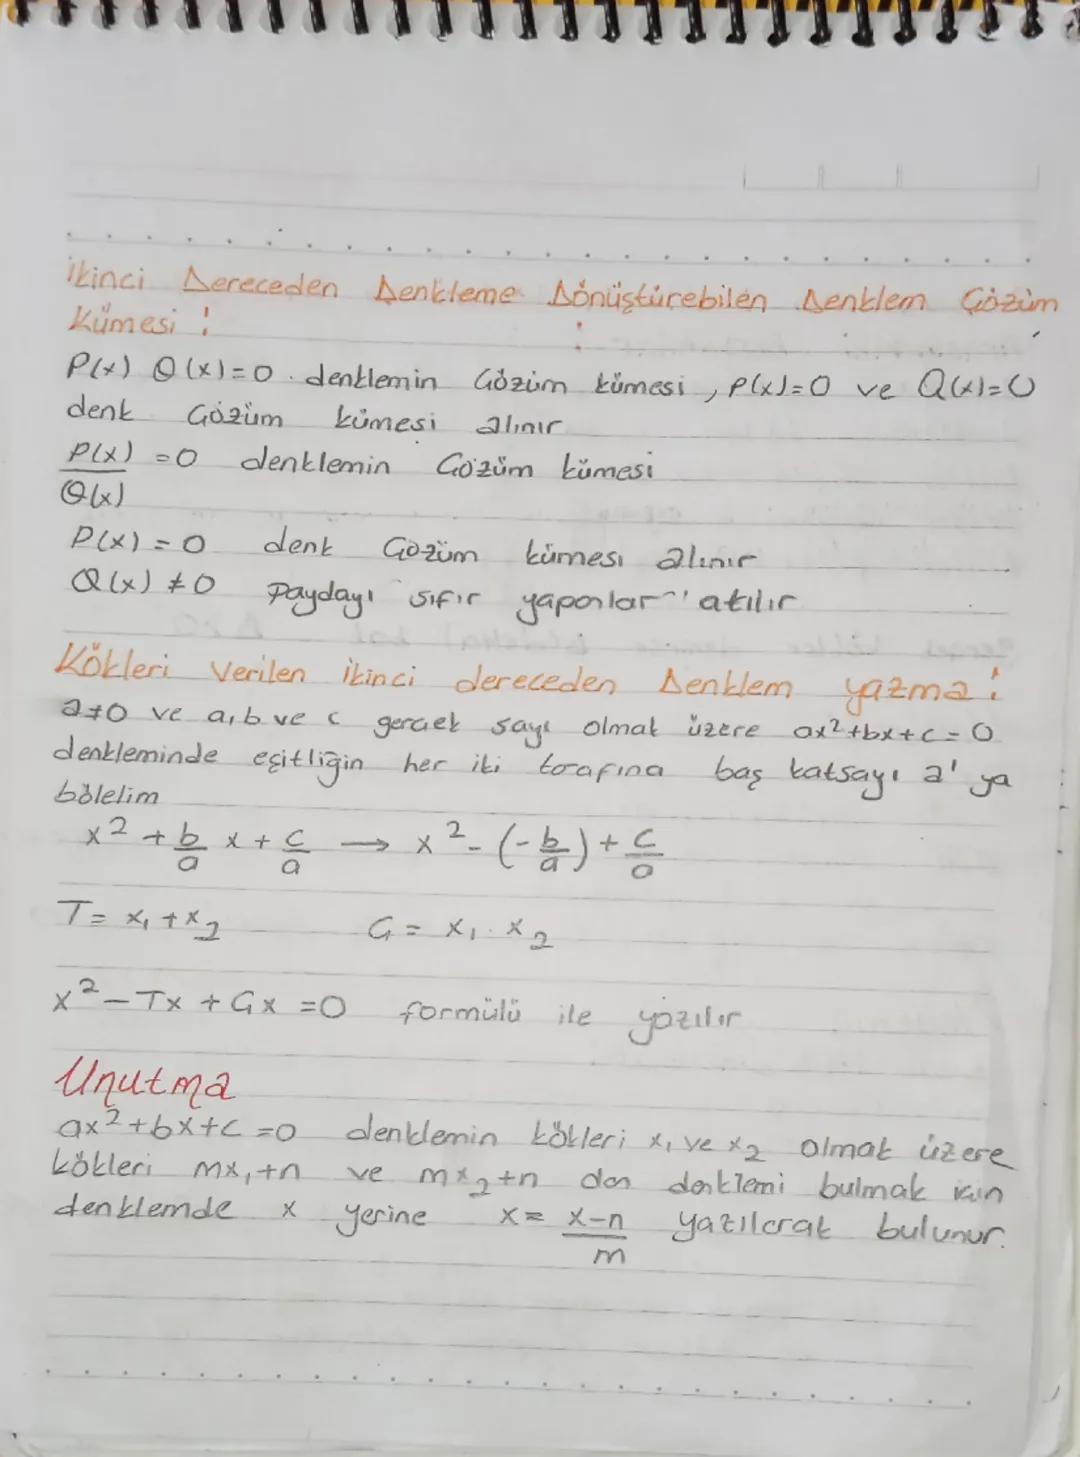 İkinci Dereceden Denkleme Dönüştürebilen Denklem Çözüm
Kümesi :
P(x) Q(x)=0 . denklemin Çözüm kümesi , P(x)=0 ve Q(x)=0
denk Çözüm kümesi alınır
P(x)/Q(x) =0 denklemin Çözüm kümesi
P(x) = 0 denk Çözüm kümesi alınır
Q(x) ≠0 paydayı sıfır yapanlar atılır
Kökleri Verilen ikinci dereceden Denklem yazma :
a≠0 ve a,b ve c gerçek sayı olmak üzere ax²+bx+c=0
denkleminde eşitliğin her iki tarafına baş katsayı a' ya
bölelim
x² + b/a x + c/a → x² - (-b/a) + c/a
T= x₁ + x₂ Ç = x₁ . x₂
x² - Tx + Çx =0 formülü ile yazılır
Unutma
ax²+bx+c=0 denklemin kökleri x₁ ve x₂ olmak üzere
kökleri mx₁+n ve mx₂+n den denklemi bulmak için
denklemde x yerine x= x-n/m yazılarak bulunur.